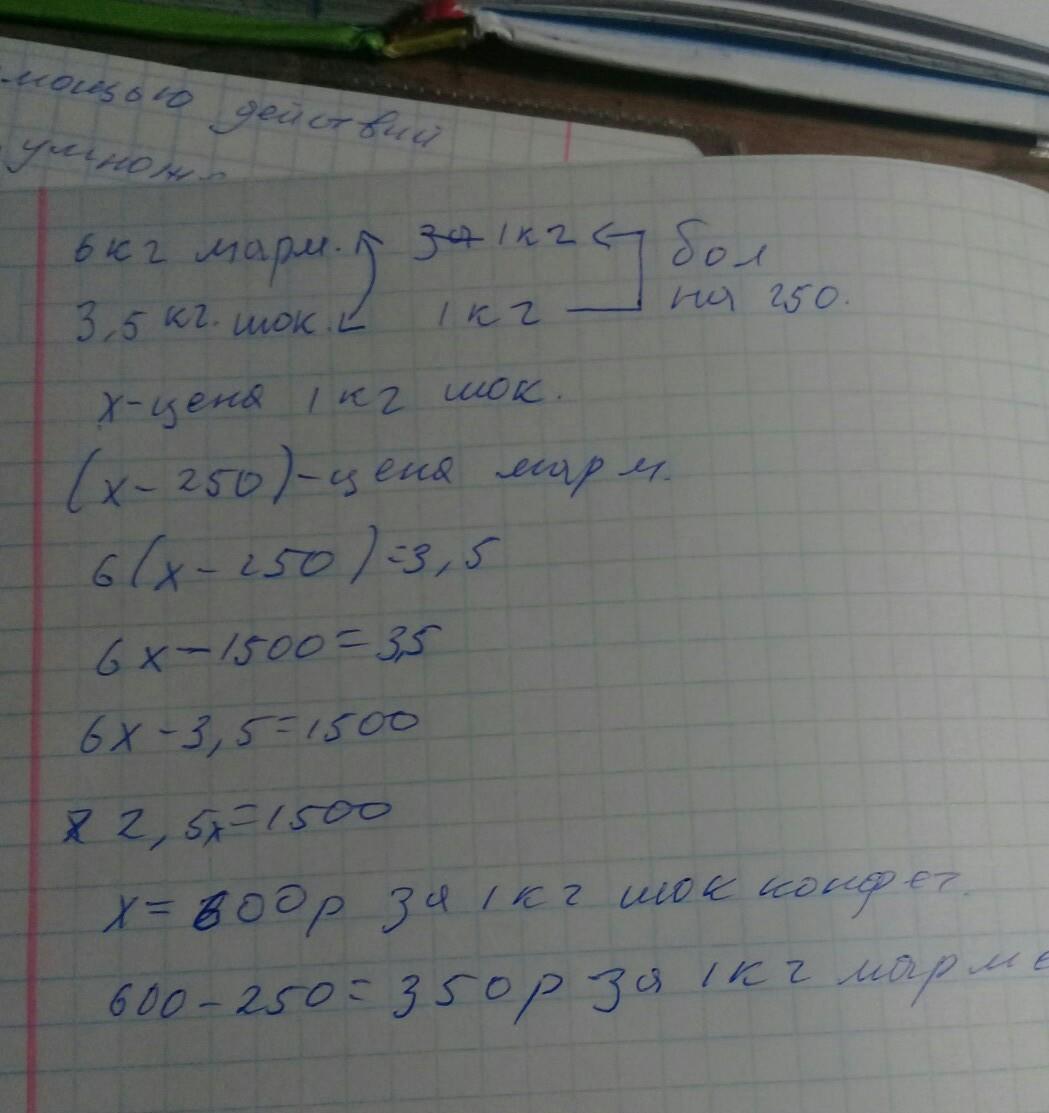 мощью действий
умнож
6 кг марм. за 1 кг бол
3,5 кг. шок. 1 кг на 250.
х-цена 1 кг шок.
(х-250)-цена марм.
6(х-250)=3,5
6х-1500=3,5
6х-3,5=1500
2,5х=1500
х=600р за 1 кг шок конфет.
600-250=350р за 1 кг марме